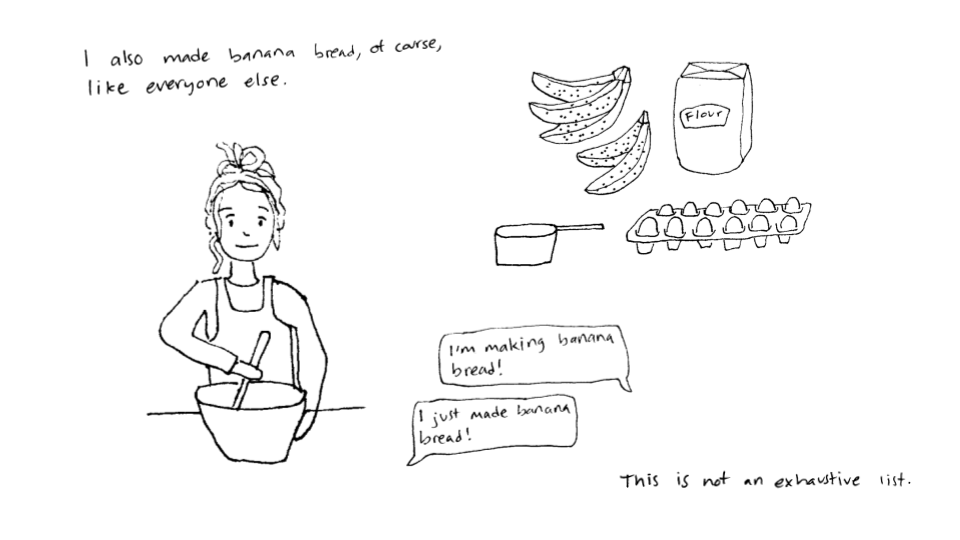 I also made banana bread, of course,
like everyone else.
Flour
I'm making banana
bread!
I just made banana
bread!
This is not an exhaustive list.